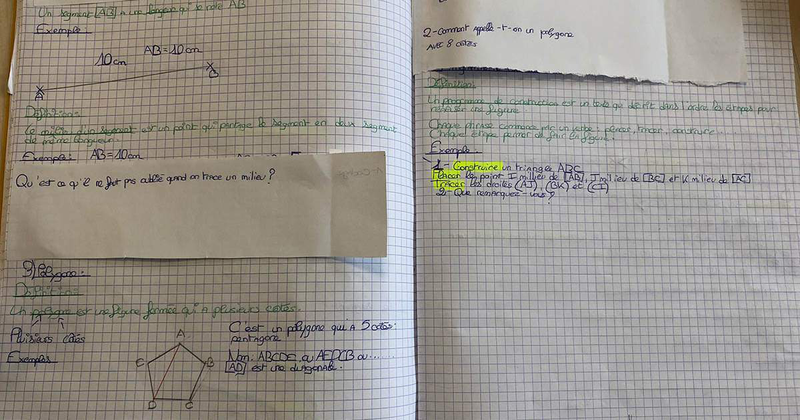 Un segment [AB] a une longueur qui se note AB
Exemple:
AB = 10cm
10cm
A
B
Définition:
Le milieu d'un segment est un point qui partage le segment en deux segment
de même longueur.
Exemple: AB = 10cm
Qu'est ce qu'il ne faut pas oublié quand on trace un milieu?
9) Polygone:
Définition:
Un polygone est une figure formée qui a plusieurs cotés.
Plusieurs cotés
Exemples
A
B
C
D
C
C'est un polygone qui a 5 cotés:
pentagone
Nom: ABCDE ou AEDCB ou.....
[AD] est une diagonale.
2-Comment appelle-t-on un polygone
avec 8 cotés
Définition:
Un programme de construction est un texte qui décrit dans l'ordre les étapes pour
une figure
Chaque phrase commence par un verbe: placer, tracer, construire...
Chaque étape permet de la figure.
Exemple:
1- Construire un triangle ABC
Placer les point I milieu de [AB], J milieu de [BC] et K milieu de [AC]
Tracer les droites (AJ), (BK) et (CI)
2-Que remarquez-vous?